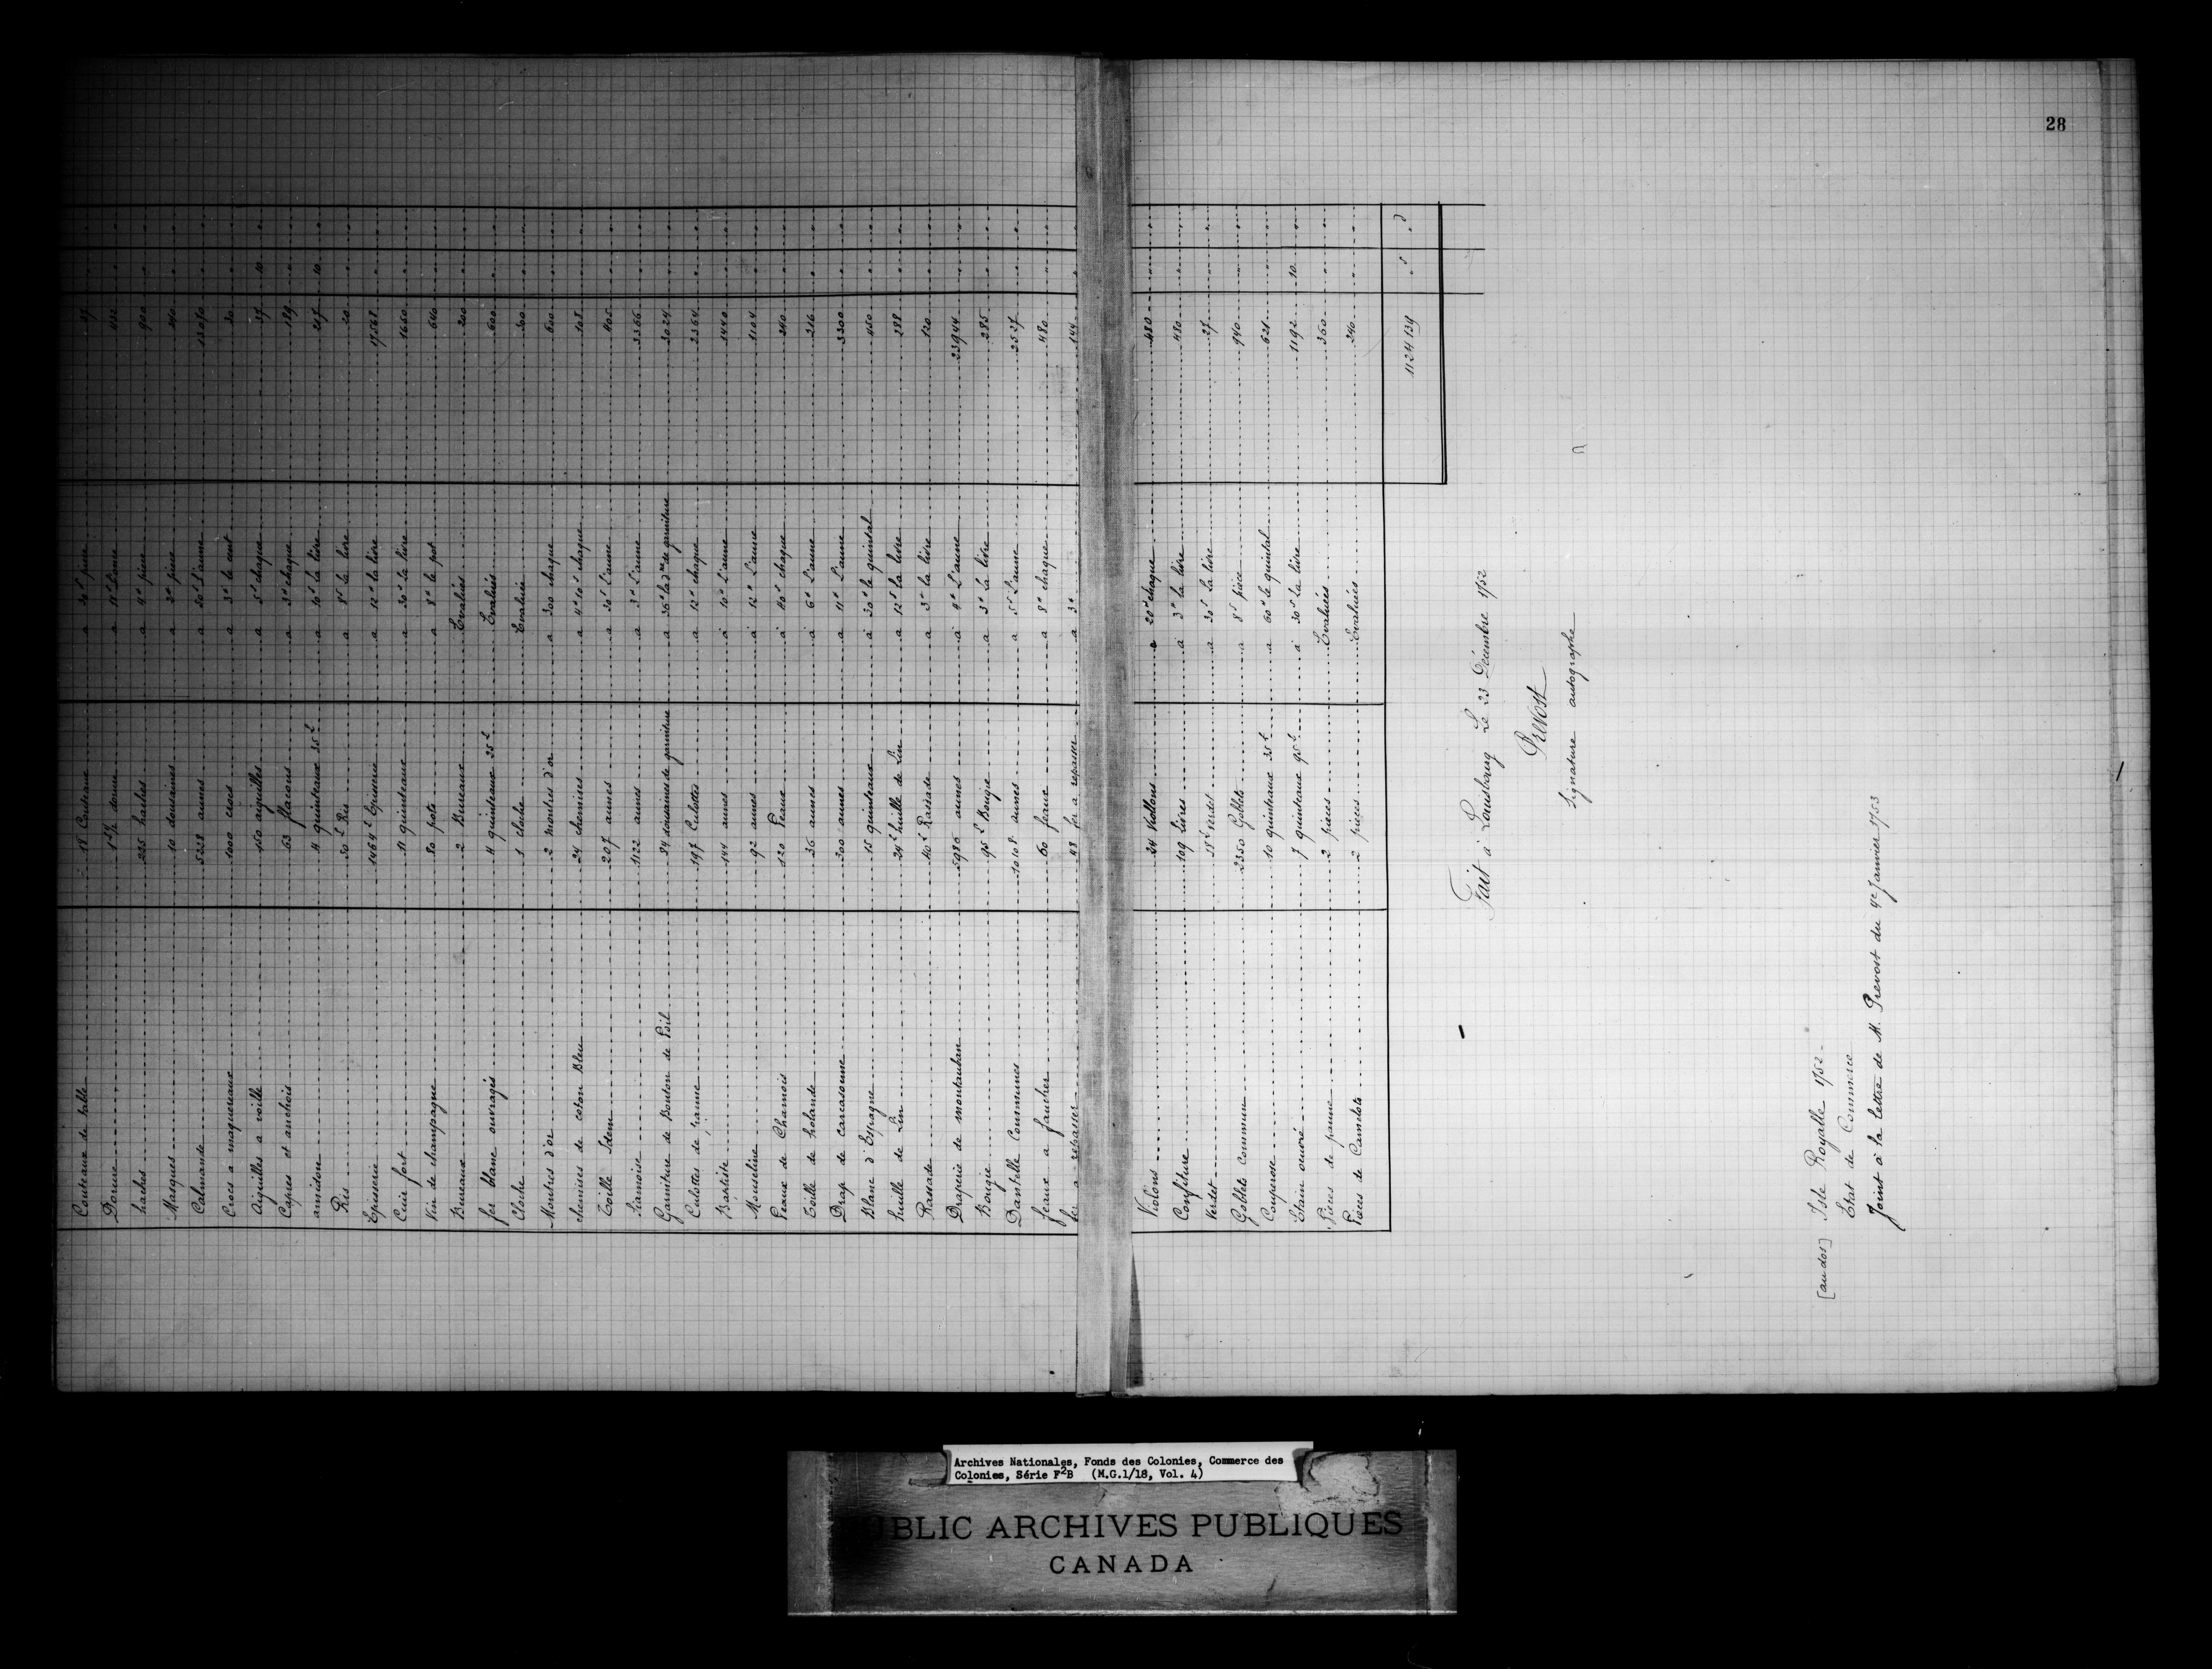 28
Couteaux de table 18 Couteaux a 30s piece 27
Dorure a L'once 432
haches 225 haches a 4# piece 900
Masques 10 douzaines a 2# piece 240
Calmande 5228 aunes a 50s L'aune 13070
Crocs a maquereaux 1000 crocs a 3# le cent 30
Aiguilles a voille 150 aiguilles a 5s chaque 37 10
Capres et anchois 63 flacons a 3# chaque 189
amidon 4 quinteaux 15L a 10s la livre 207 10
Ris 50L Ris a 8s la livre 20
Episserie 1464L Episserie a 12# la livre 17568
Cuir fort 11 quinteaux a 30s la livre 1650
Vin de champagne 80 pots a 8# le pot 640
Bureaux 2 Bureaux Evalués 200
fer blanc ouvragés 4 quinteaux 25L Evalués 600
Cloche 1 cloche Evaluée 300
Montres d'or 2 montres d'or a 300 chaque 600
chemises de coton Bleu 24 chemises a 4# 10s chaque 108
Toille Idem 207 aunes a 30s L'aune 405
Siamoise 1122 aunes a 3# L'aune 3366
Garniture de Bouton de Poil 84 douzaines de garniture a 36# la dne de garniture 3024
Culottes de panne 197 Culottes a 12# chaque 2364
Batiste 144 aunes a 10# L'aune 1440
Mousseline 92 aunes a 12# L'aune 1104
Peaux de Chamois 120 Peaux a 40s chaque 240
Toille de holande 36 aunes a 6# L'aune 216
Drap de carcasonne 300 aunes a 11# L'aune 3300
Blanc d'Espagne 15 quinteaux a 30# le quintal 450
huille de Lin 24L huille de Lin a 12s la livre 288
Rassade 40L Rassade a 3# la livre 120
Draperie de montauban 5986 aunes a 4# L'aune 23944
Bougie 95L Bougie a 3# La livre 285
Dantelle Communes 10108 aunes a 5s L'aune 2527
feaux a faucher 60 feaux a 8# chaque 480
fer a repasser 48 fer a repasser a 3# 144
Violons 24 Viollons a 20# chaque 480
Confiture 109 livres a 3# la livre 480
Verdet 18L verdet a 30s La livre 27
Goblets commun 2350 Goblets a 8s piece 940
Couperose 10 quinteaux 35L a 60# le quintal 621
Etain ouvré 7 quinteaux 95L a 30s La livre 1192 10
Pieces de panne 2 pieces Evaluées 360
Pieces de Camelots 2 pieces Evaluées 240
1124139 s d
Fait à Louisbourg Le 23 Décembre 1752
Prevost
Signature autographe
[au dos] Isle Royalle 1752 -
Etat de Commerce
Joint à la lettre de M. Prevost du 4e Janvier 1753
Archives Nationales, Fonds des Colonies, Commerce des
Colonies, Série F2B (M.G.1/18, Vol. 4)
PUBLIC ARCHIVES PUBLIQUES
CANADA